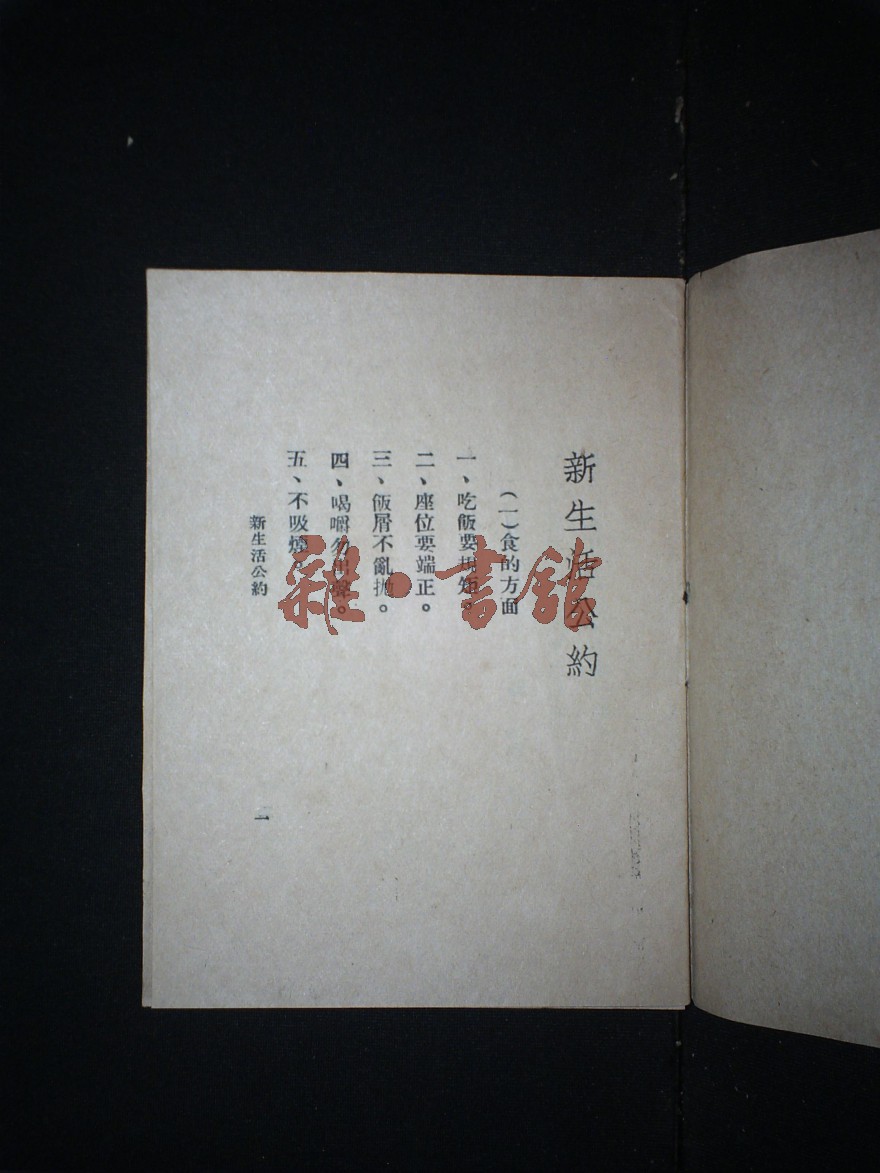 新生活公約
(一)食的方面
一、吃飯要規矩。
二、座位要端正。
三、飯屑不亂抛。
四、喝嚼勿出聲。
五、不吸煙。
新生活公約
雜·書館